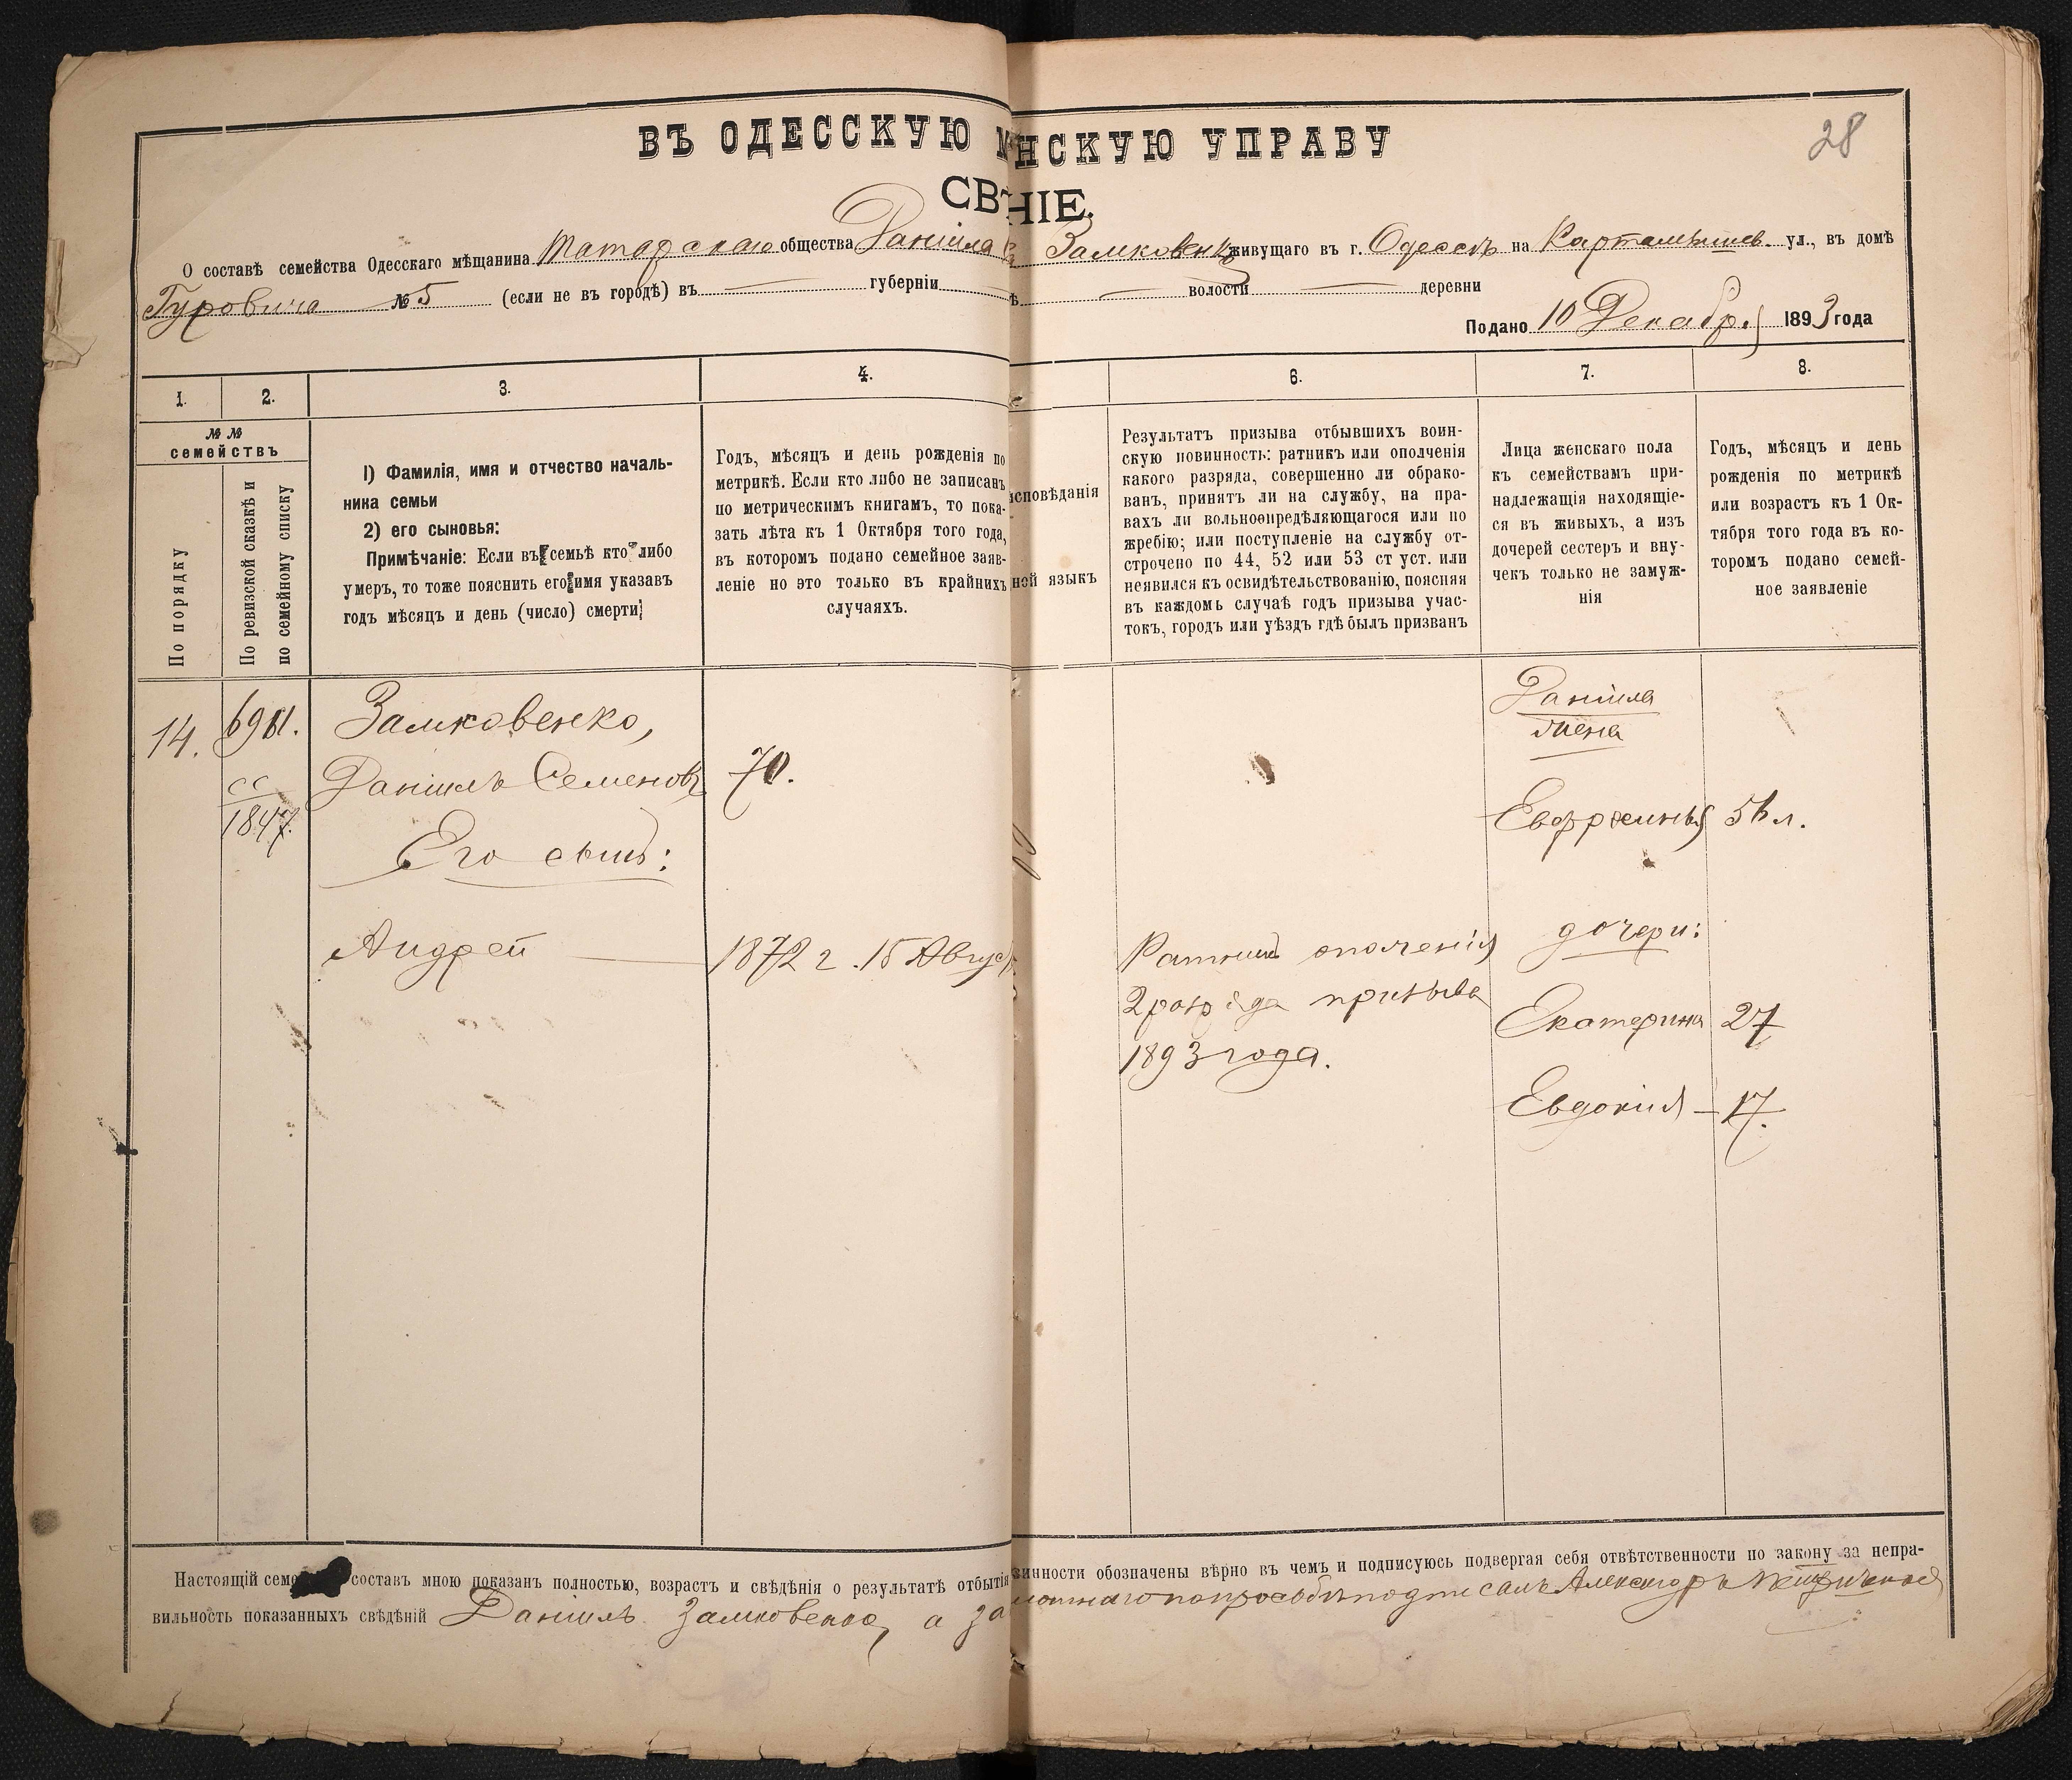 28
ВЪ ОДЕССКУЮ НСКУЮ УПРАВУ
СВ НІЕ.
О составѣ семейства Одесскаго мѣщанина Татарскаго общества Даніила Замковенко живущаго въ г. Одессѣ на Картамышев. ул., въ домѣ
Гуровича № 5 (если не въ городѣ) въ — губерніи — волости — деревни
Подано 10 Декабря 1893 года
1.
2.
3.
4.
6.
7.
8.
№ №
семействъ
По порядку
По ревизской сказкѣ и
по семейному списку
1) Фамилія, имя и отчество началь-
ника семьи
2) его сыновья:
Примѣчаніе: Если въ семьѣ кто либо
умеръ, то тоже пояснить его имя указавъ
годъ мѣсяцъ и день (число) смерти;
Годъ, мѣсяцъ и день рожденія по
метрикѣ. Если кто либо не записанъ
по метрическимъ книгамъ, то пока-
зать лѣта къ 1 Октября того года,
въ которомъ подано семейное заяв-
леніе но это только въ крайнихъ
случаяхъ.
исповѣданія
ной языкъ
Результатъ призыва отбывшихъ воин-
скую повинность: ратникъ или ополченія
какого разряда, совершенно ли обрако-
ванъ, принятъ ли на службу, на пра-
вахъ ли вольноопредѣляющагося или по
жребію; или поступленіе на службу от-
строчено по 44, 52 или 53 ст уст. или
неявился къ освидѣтельствованію, поясняя
въ каждомъ случаѣ годъ призыва учас-
токъ, городъ или уѣздъ гдѣ былъ призванъ
Лица женскаго пола
къ семействамъ при-
надлежащія находящіе-
ся въ живыхъ, а изъ
дочерей сестеръ и вну-
чекъ только не замуж-
нія
Годъ, мѣсяцъ и день
рожденія по метрикѣ
или возрастъ къ 1 Ок-
тября того года въ ко-
торомъ подано семей-
ное заявленіе
14.
сс
1847.
Замковенко,
Даніилъ Семеновъ
70.
Его сынъ:
Андрей — 1872 г. 15 Август
Ратникъ ополченія
2 разряда призыва
1893 года.
Даніила
жена
Евфросинья
дочери:
Екатерина 27
Евдокія — 17.
Настоящій семе составъ мною показанъ полностью, возрастъ и свѣдѣнія о результатѣ отбытія винности обозначены вѣрно въ чемъ и подписуюсь подвергая себя отвѣтственности по закону за непра-
вильность показанныхъ свѣдѣній Даніилъ Замковенко, а за мотнаго по просьбѣ подписалъ Александръ